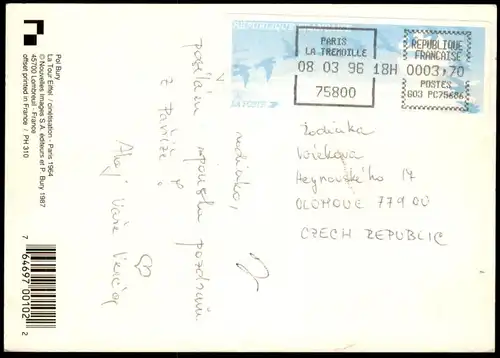 Pol Bury
La Tour Eiffel / cinétisation - Paris 1964
© Nouvelles Images S.A. éditeurs et P. Bury 1987
45700 Lombreuil - France
offset printed in France / PH 310
7 64697 00102 2
REPUBLIQUE FRANCAISE
LA POSTE
PARIS
LA TREMOILLE
08 03 96 18H
75800
REPUBLIQUE
FRANCAISE
0003,70
POSTES
G03 PC75686
rodinko,
posílám spoustu pozdravů
z Paříže
Ahoj Vaše
Rodinka
Hejnovského 17
OLOMOUC 779 00
CZECH REPUBLIC